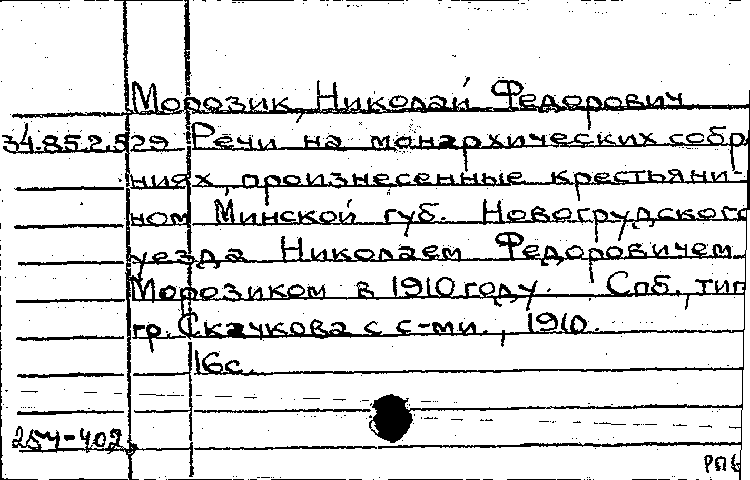 Морозик, Николай Федорович
34.852.529 Речи на монархических собр
ниях, произнесенные крестьяни-
ном Минской губ. Новогрудского
уезда Николаем Федоровичем
Морозиком в 1910 году. Спб., тип
гр. Скачкова с с-ми., 1910.
16с.
254-402
РПБ